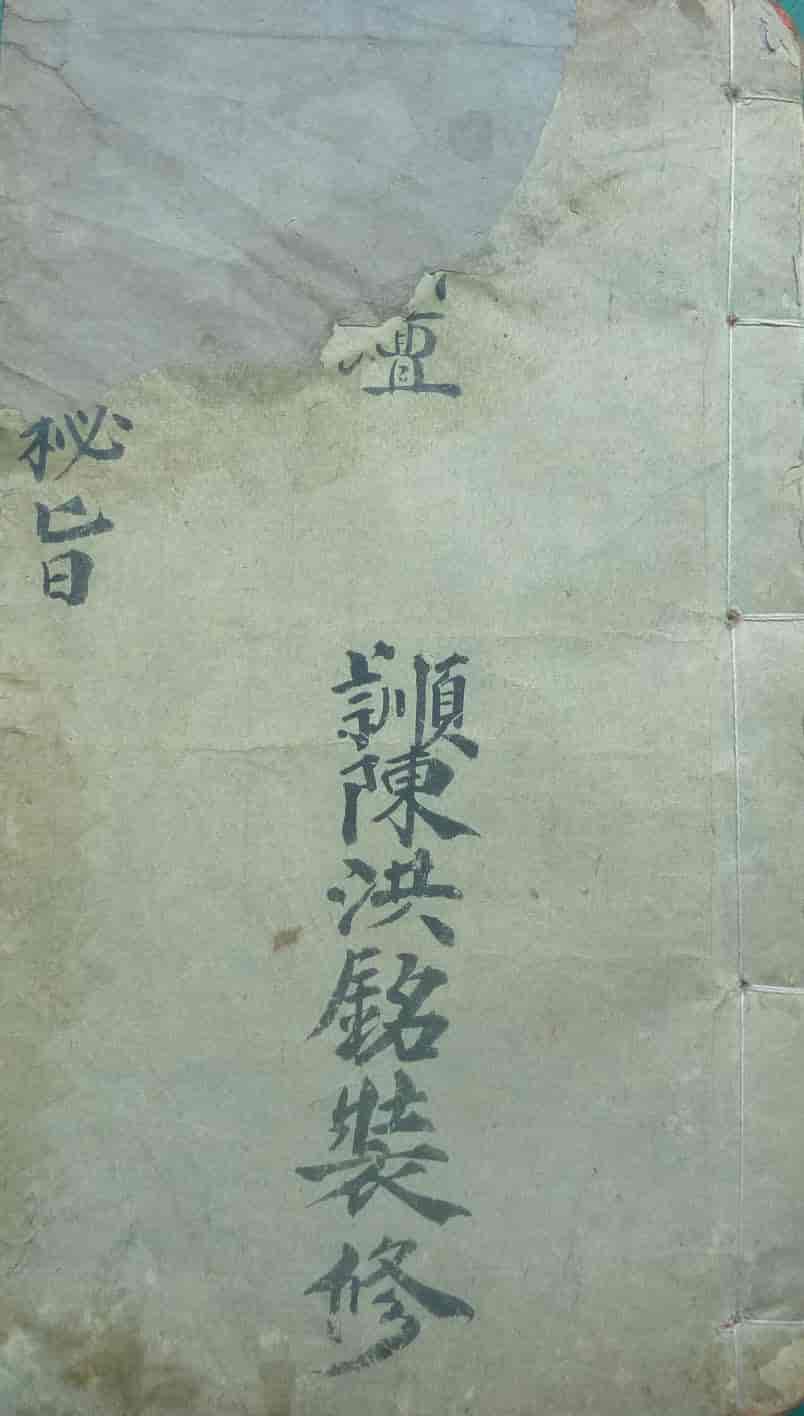 壇
順
訓
陳洪銘裝修
秘旨